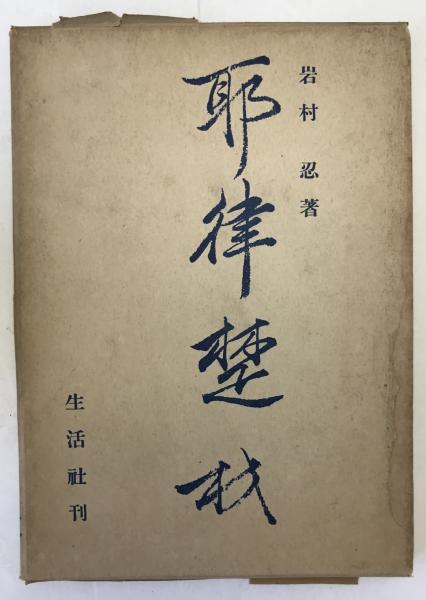 岩村忍著
耶律楚材
生活社刊